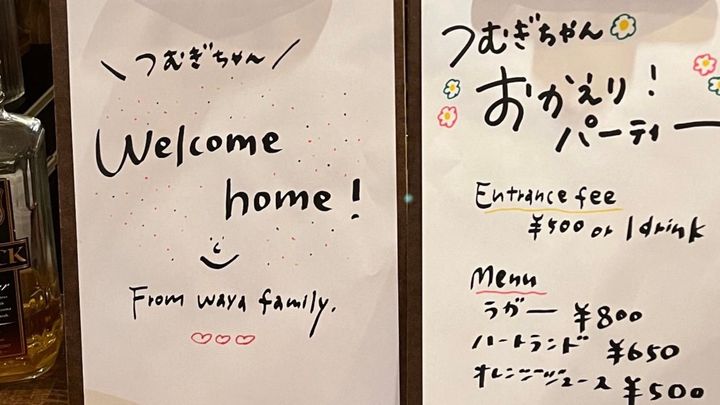 \ つむぎちゃん /
Welcome
home!
From waya family.
つむぎちゃん
おかえり!
パーティー
Entrance fee
¥500 or 1drink
Menu
ラガー ¥800
ハートランド ¥650
オレンジジュース ¥500
CK